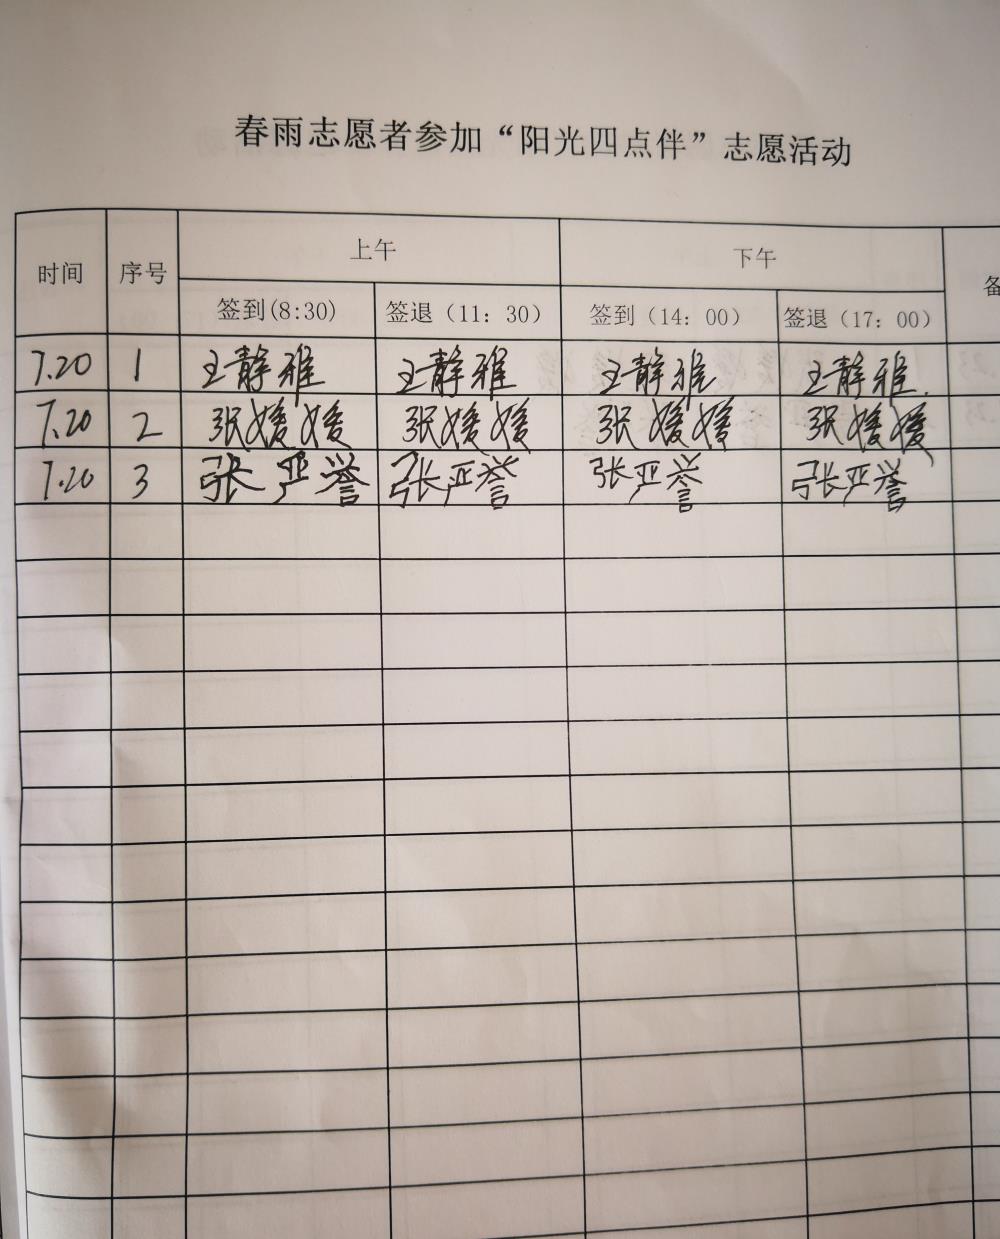 春雨志愿者参加“阳光四点伴”志愿活动
时间 序号 上午 下午 备
签到(8:30) 签退（11：30） 签到（14：00） 签退（17：00）
7.20 1 王静雅 王静雅 王静雅 王静雅.
7.20 2 张媛媛 张媛媛 张媛媛 张媛媛
7.20 3 张严誉 张严誉 张严誉 张严誉